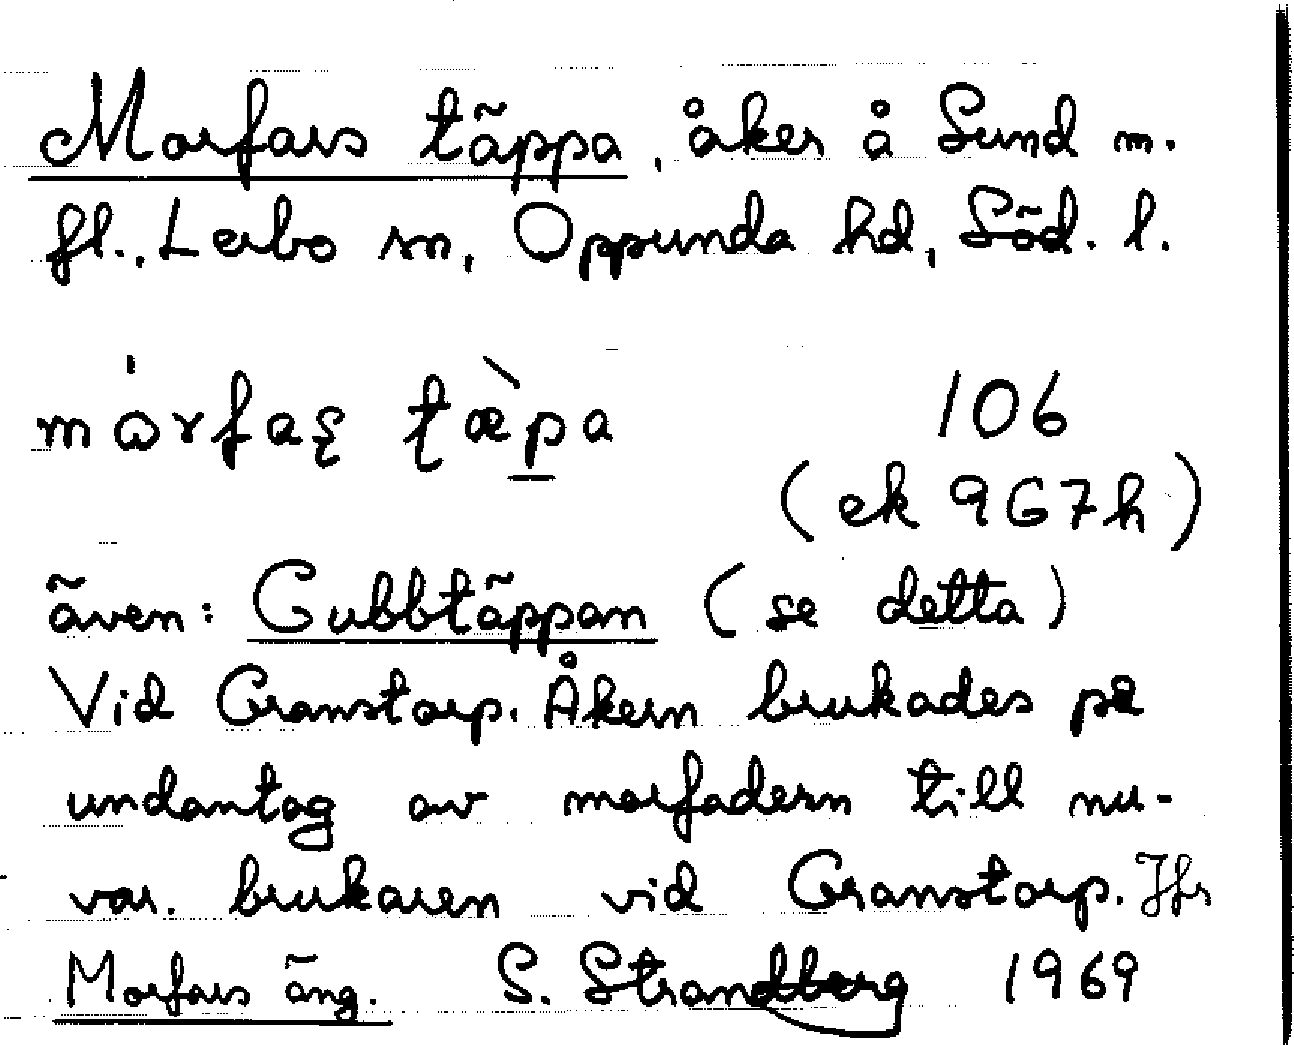 Morfars täppa, åker å Sund m.
fl., Lerbo sn, Oppunda hd, Söd. l.
mòrfaş tæ̀pa 106
(ek 9G7h)
även: Gubbtäppan (se detta)
Vid Granstorp. Åkern brukades på
undantag av morfadern till nu-
var. brukaren vid Granstorp. Jfr
Morfars äng. S. Strandberg 1969